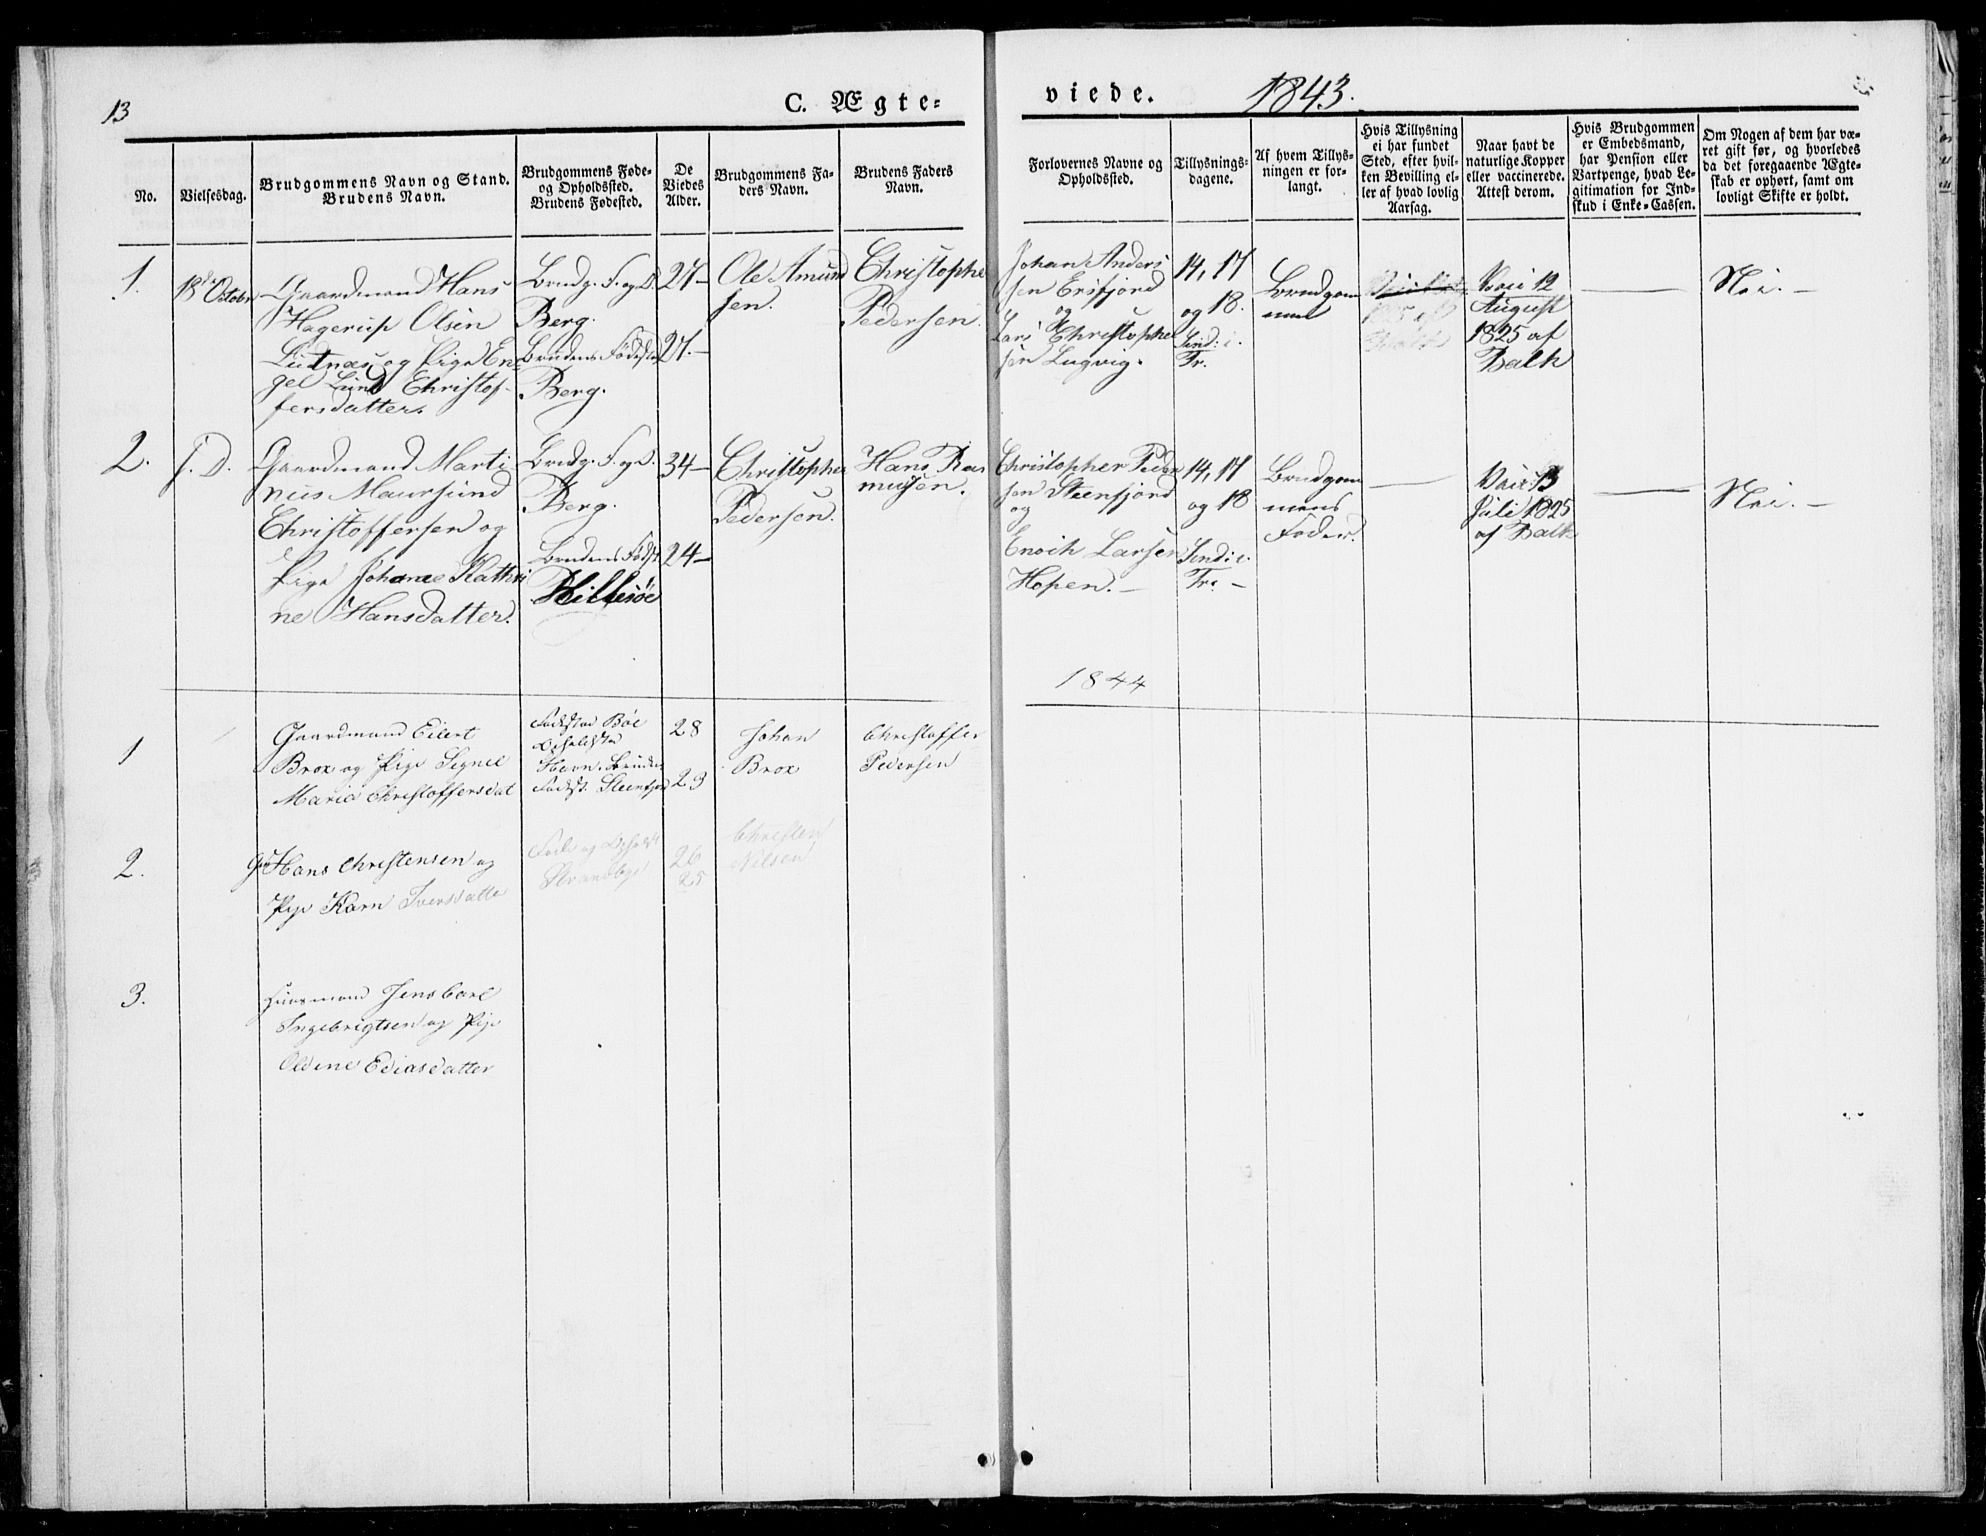 13
C. Ægte-
viede. 1843.
No.
Vielsesdag.
Brudgommens Navn og Stand.
Brudens Navn.
Brudgommens Føde-
og Opholdssted.
Brudens Fødested.
De
Viedes
Alder.
Brudgommens Fa-
ders Navn.
Brudens Faders
Navn.
Forlovernes Navne og
Opholdssted.
Tillysnings-
dagene.
Af hvem Tillys-
ningen er for-
langt.
Hvis Tillysning
ei har fundet
Sted, efter hvil-
ken Bevilling el-
ler af hvad lovlig
Aarsag.
Naar havt de
naturlige Kopper
eller vaccinerede.
Attest derom.
Hvis Brudgommen
er Embedsmand,
har Pension eller
Vartpenge, hvad Le-
gitimation for Ind-
skud i Enke-Cassen.
Om Nogen af dem har væ-
ret gift før, og hvorledes
da det foregaaende Ægte-
skab er ophørt, samt om
lovligt Skifte er holdt.
1.
18de Octobr
Gaardmand Hans
Hagerup Olsen
og Pige En-
gel Lund Christof-
fersdatter.
Brudg. F. og O.
Berg.
Brudens Fødested
Berg.
27-
27.-
Ole Amund
sen.
Christopher
Pedersen.
Johan Anders
sen Ersfjord
og
Lars Christopher
sen Lugvig.
14, 17
og 18.
Trind: i.
Tr.
Brudgom
men
Vaci 12
August
1825 af
Balk
Nei. -
2.
J. D.
Gaardmand Marti
nus Maursund
Christoffersen og
Pige Johane Kathri
ne Hansdatter.
Brudg. F. og O.
Berg.
Brudens Fødst.
Hillesøe
34-
24-
Christopher
Pedersen.
Hans Ras
musen.
Christopher Peder
sen Steenfjord
og
Enoch Larsen
Hopen. -
14, 17
og 18
Trind: i.
Tr. -
Brudgom
mens
Fader.
Vaci 13
Juli 1825
af Balk
Nei. -
1844
1
Gaardmand Eilert
Brox og Pige Signel
Maria Christoffersdat
Fødested Bøe
Opholdsted
Hevn. Brudens
Fødst. Steenfjord
28
23
Johan
Brox
Christoffer
Pedersen
2.
Hans Christensen og
Pige Karn Iversdatter
Føde og Opholdst
Strandbye
26
25
Christen
Nilsen
3.
Huusmand Jens Carl
Ingebrigtsen og Pige
Oldine Ediasdatter